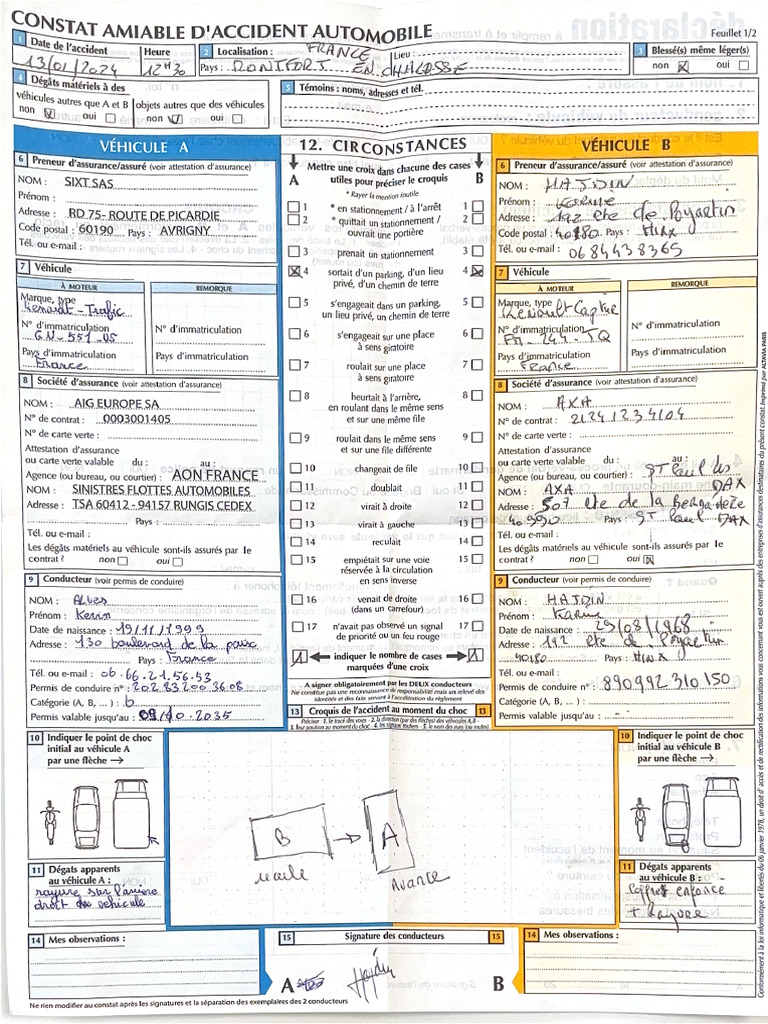 CONSTAT AMIABLE D'ACCIDENT AUTOMOBILE
Feuillet 1/2
1 Date de l'accident Heure
13/01/2024 12H30
2 Localisation : FRANCE Lieu :
Pays : MONTFORT EN CHALOSSE
3 Blessé(s) même léger(s)
non oui
4 Dégâts matériels à des
véhicules autres que A et B objets autres que des véhicules
non oui non oui
5 Témoins : noms, adresses et tél.
VÉHICULE A
6 Preneur d'assurance/assuré (voir attestation d'assurance)
NOM : SIXT SAS
Prénom :
Adresse : RD 75- ROUTE DE PICARDIE
Code postal : 60190 Pays : AVRIGNY
Tél. ou e-mail :
7 Véhicule
À MOTEUR REMORQUE
Marque, type
Renault - Trafic
N° d'immatriculation N° d'immatriculation
GN-551-05
Pays d'immatriculation Pays d'immatriculation
France
8 Société d'assurance (voir attestation d'assurance)
NOM : AIG EUROPE SA
N° de contrat : 0003001405
N° de carte verte :
Attestation d'assurance
ou carte verte valable du : au :
Agence (ou bureau, ou courtier) : AON FRANCE
NOM : SINISTRES FLOTTES AUTOMOBILES
Adresse : TSA 60412 - 94157 RUNGIS CEDEX
Pays :
Tél. ou e-mail :
Les dégâts matériels au véhicule sont-ils assurés par le
contrat ? non oui
9 Conducteur (voir permis de conduire)
NOM : Alves
Prénom : Kevin
Date de naissance : 19/11/1999
Adresse : 130 boulevard de la paix
Pays : France
Tél. ou e-mail : 06.66.21.56.53
Permis de conduire n° : 20283200 36 08
Catégorie (A, B, ... ) : b
Permis valable jusqu'au : 09/10-2035
12. CIRCONSTANCES
Mettre une croix dans chacune des cases
A utiles pour préciser le croquis B
* Rayer la mention inutile
1 * en stationnement / à l'arrêt 1
2 * quittait un stationnement / 2
ouvrait une portière
3 prenait un stationnement 3
4 sortait d'un parking, d'un lieu 4
privé, d'un chemin de terre
5 s'engageait dans un parking, 5
un lieu privé, un chemin de terre
6 s'engageait sur une place 6
à sens giratoire
7 roulait sur une place 7
à sens giratoire
8 heurtait à l'arrière, 8
en roulant dans le même sens
et sur une même file
9 roulait dans le même sens 9
et sur une file différente
10 changeait de file 10
11 doublait 11
12 virait à droite 12
13 virait à gauche 13
14 reculait 14
15 empiétait sur une voie 15
réservée à la circulation
en sens inverse
16 venait de droite 16
(dans un carrefour)
17 n'avait pas observé un signal 17
de priorité ou un feu rouge
1 indiquer le nombre de cases 1
marquées d'une croix
A signer obligatoirement par les DEUX conducteurs
Ne constitue pas une reconnaissance de responsabilité mais un relevé des
identités et des faits servant à l'accélération du règlement
13 Croquis de l'accident au moment du choc 13
Préciser : 1. le tracé des voies - 2. la direction (par des flèches) des véhicules A, B -
3. leur position au moment du choc - 4. les signaux routiers - 5. le nom des rues (ou routes)
VÉHICULE B
6 Preneur d'assurance/assuré (voir attestation d'assurance)
NOM : HAJDIN
Prénom : Karine
Adresse : 192 che de Poyartin
Code postal : 40180 Pays : HINX
Tél. ou e-mail : 0684438365
7 Véhicule
À MOTEUR REMORQUE
Marque, type
Renault Captur
N° d'immatriculation N° d'immatriculation
FA-244-TQ
Pays d'immatriculation Pays d'immatriculation
France
8 Société d'assurance (voir attestation d'assurance)
NOM : AXA
N° de contrat : 21241234104
N° de carte verte :
Attestation d'assurance
ou carte verte valable du : au :
Agence (ou bureau, ou courtier) : ST Paul les DAX
NOM : AXA
Adresse : 507 rte de la
40990 Pays : ST Paul DAX
Tél. ou e-mail :
Les dégâts matériels au véhicule sont-ils assurés par le
contrat ? non oui
9 Conducteur (voir permis de conduire)
NOM : HAJDIN
Prénom : Karine
Date de naissance : 29/08/1968
Adresse : 192 che de Poyartin
40180 Pays : HINX
Tél. ou e-mail :
Permis de conduire n° : 890992310150
Catégorie (A, B, ... ) :
Permis valable jusqu'au :
10 Indiquer le point de choc
initial au véhicule A
par une flèche
11 Dégâts apparents
au véhicule A :
rayure sur l'arriere
droit du vehicule
B
recule
A
Avance
10 Indiquer le point de choc
initial au véhicule B
par une flèche
11 Dégâts apparents
au véhicule B :
Coffret enfoncé
+ Rayure
14 Mes observations :
15 Signature des conducteurs 15
A B
Hajdin
14 Mes observations :
Ne rien modifier au constat après les signatures et la séparation des exemplaires des 2 conducteurs